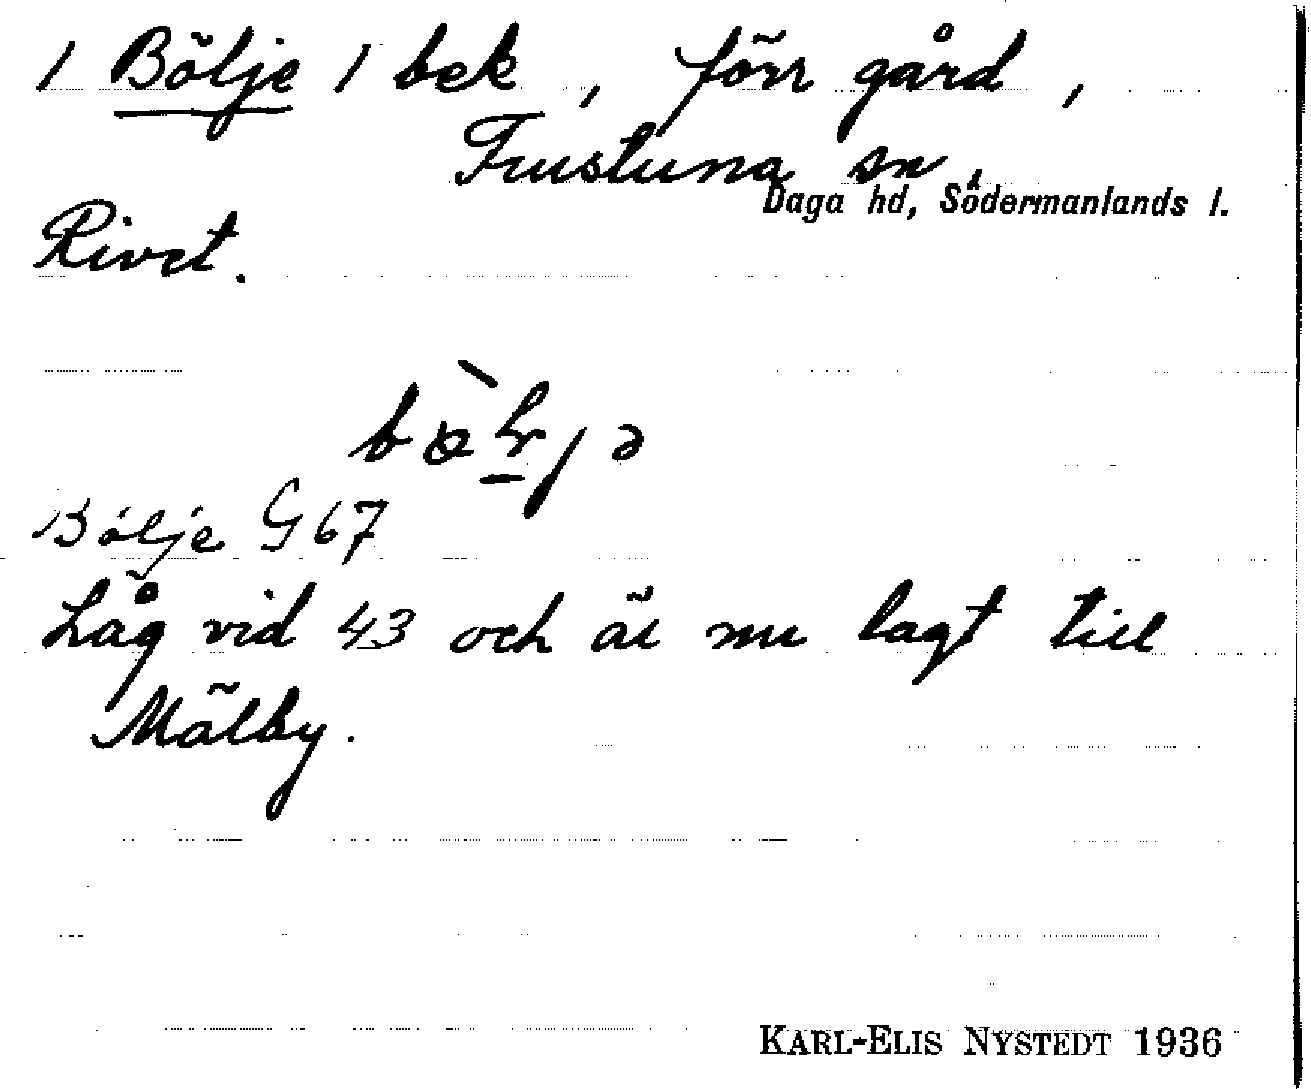 / Bölje / bek, förr gård,
Frustuna sn,
Daga hd, Södermanlands l.
Rivet.
Bölje G 67
Låg vid 43 och är nu lagt till
Mälby.
KARL-ELIS NYSTEDT 1936